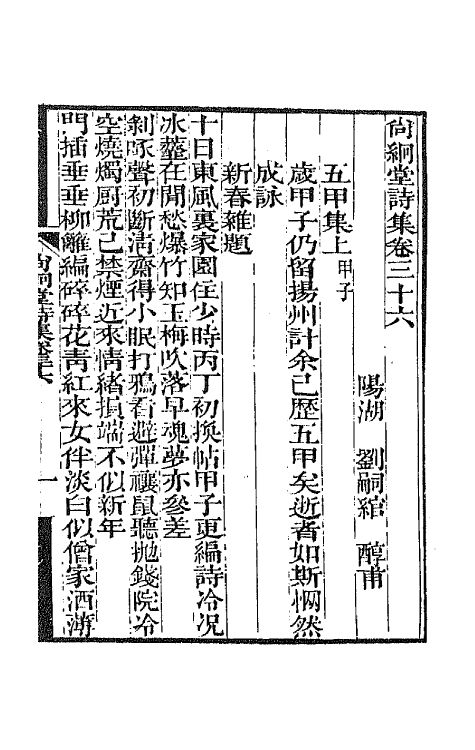 尙絅堂詩集卷三十六
陽湖 劉嗣綰 醇甫
五甲集上甲子
歲甲子仍留揚州計余已歷五甲矣逝者如斯惘然
成詠
新春雜題
十日東風裏家園住少時丙丁初換帖甲子更編詩冷况
冰虀在閒愁爆竹知玉梅吹落早魂夢亦參差
剝啄聲初斷淸齋得小眠打鴉看避彈禳鼠聽拋錢院冷
空燒燭厨荒已禁煙近來情緒損端不似新年
門插垂垂柳離編碎碎花靑紅來女伴淡白似僧家酒薄
尙絅堂詩集卷三十六
一